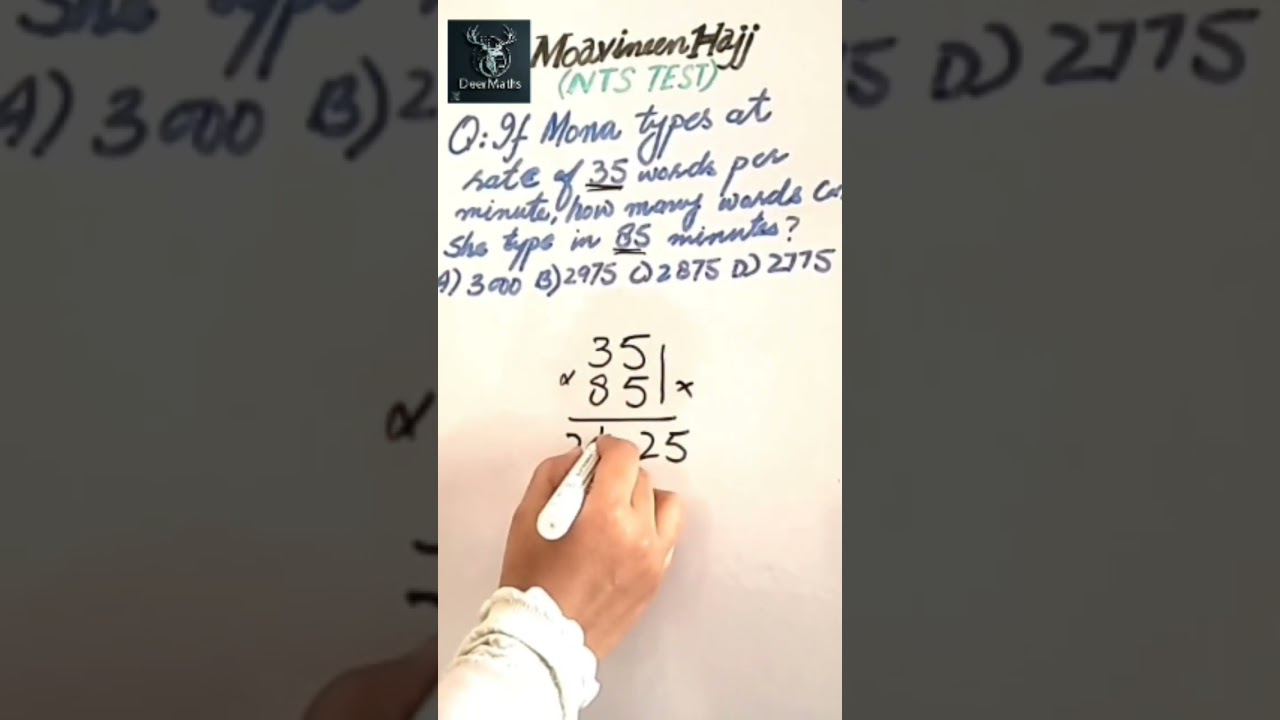 DeerMaths
Moavineen Hajj
(NTS TEST)
Q: If Mona types at
rate of 35 words per
minute, how many words
She type in 85 minutes?
A) 3000 B) 2975 C) 2875 D) 2775
35
× 85 ×
25